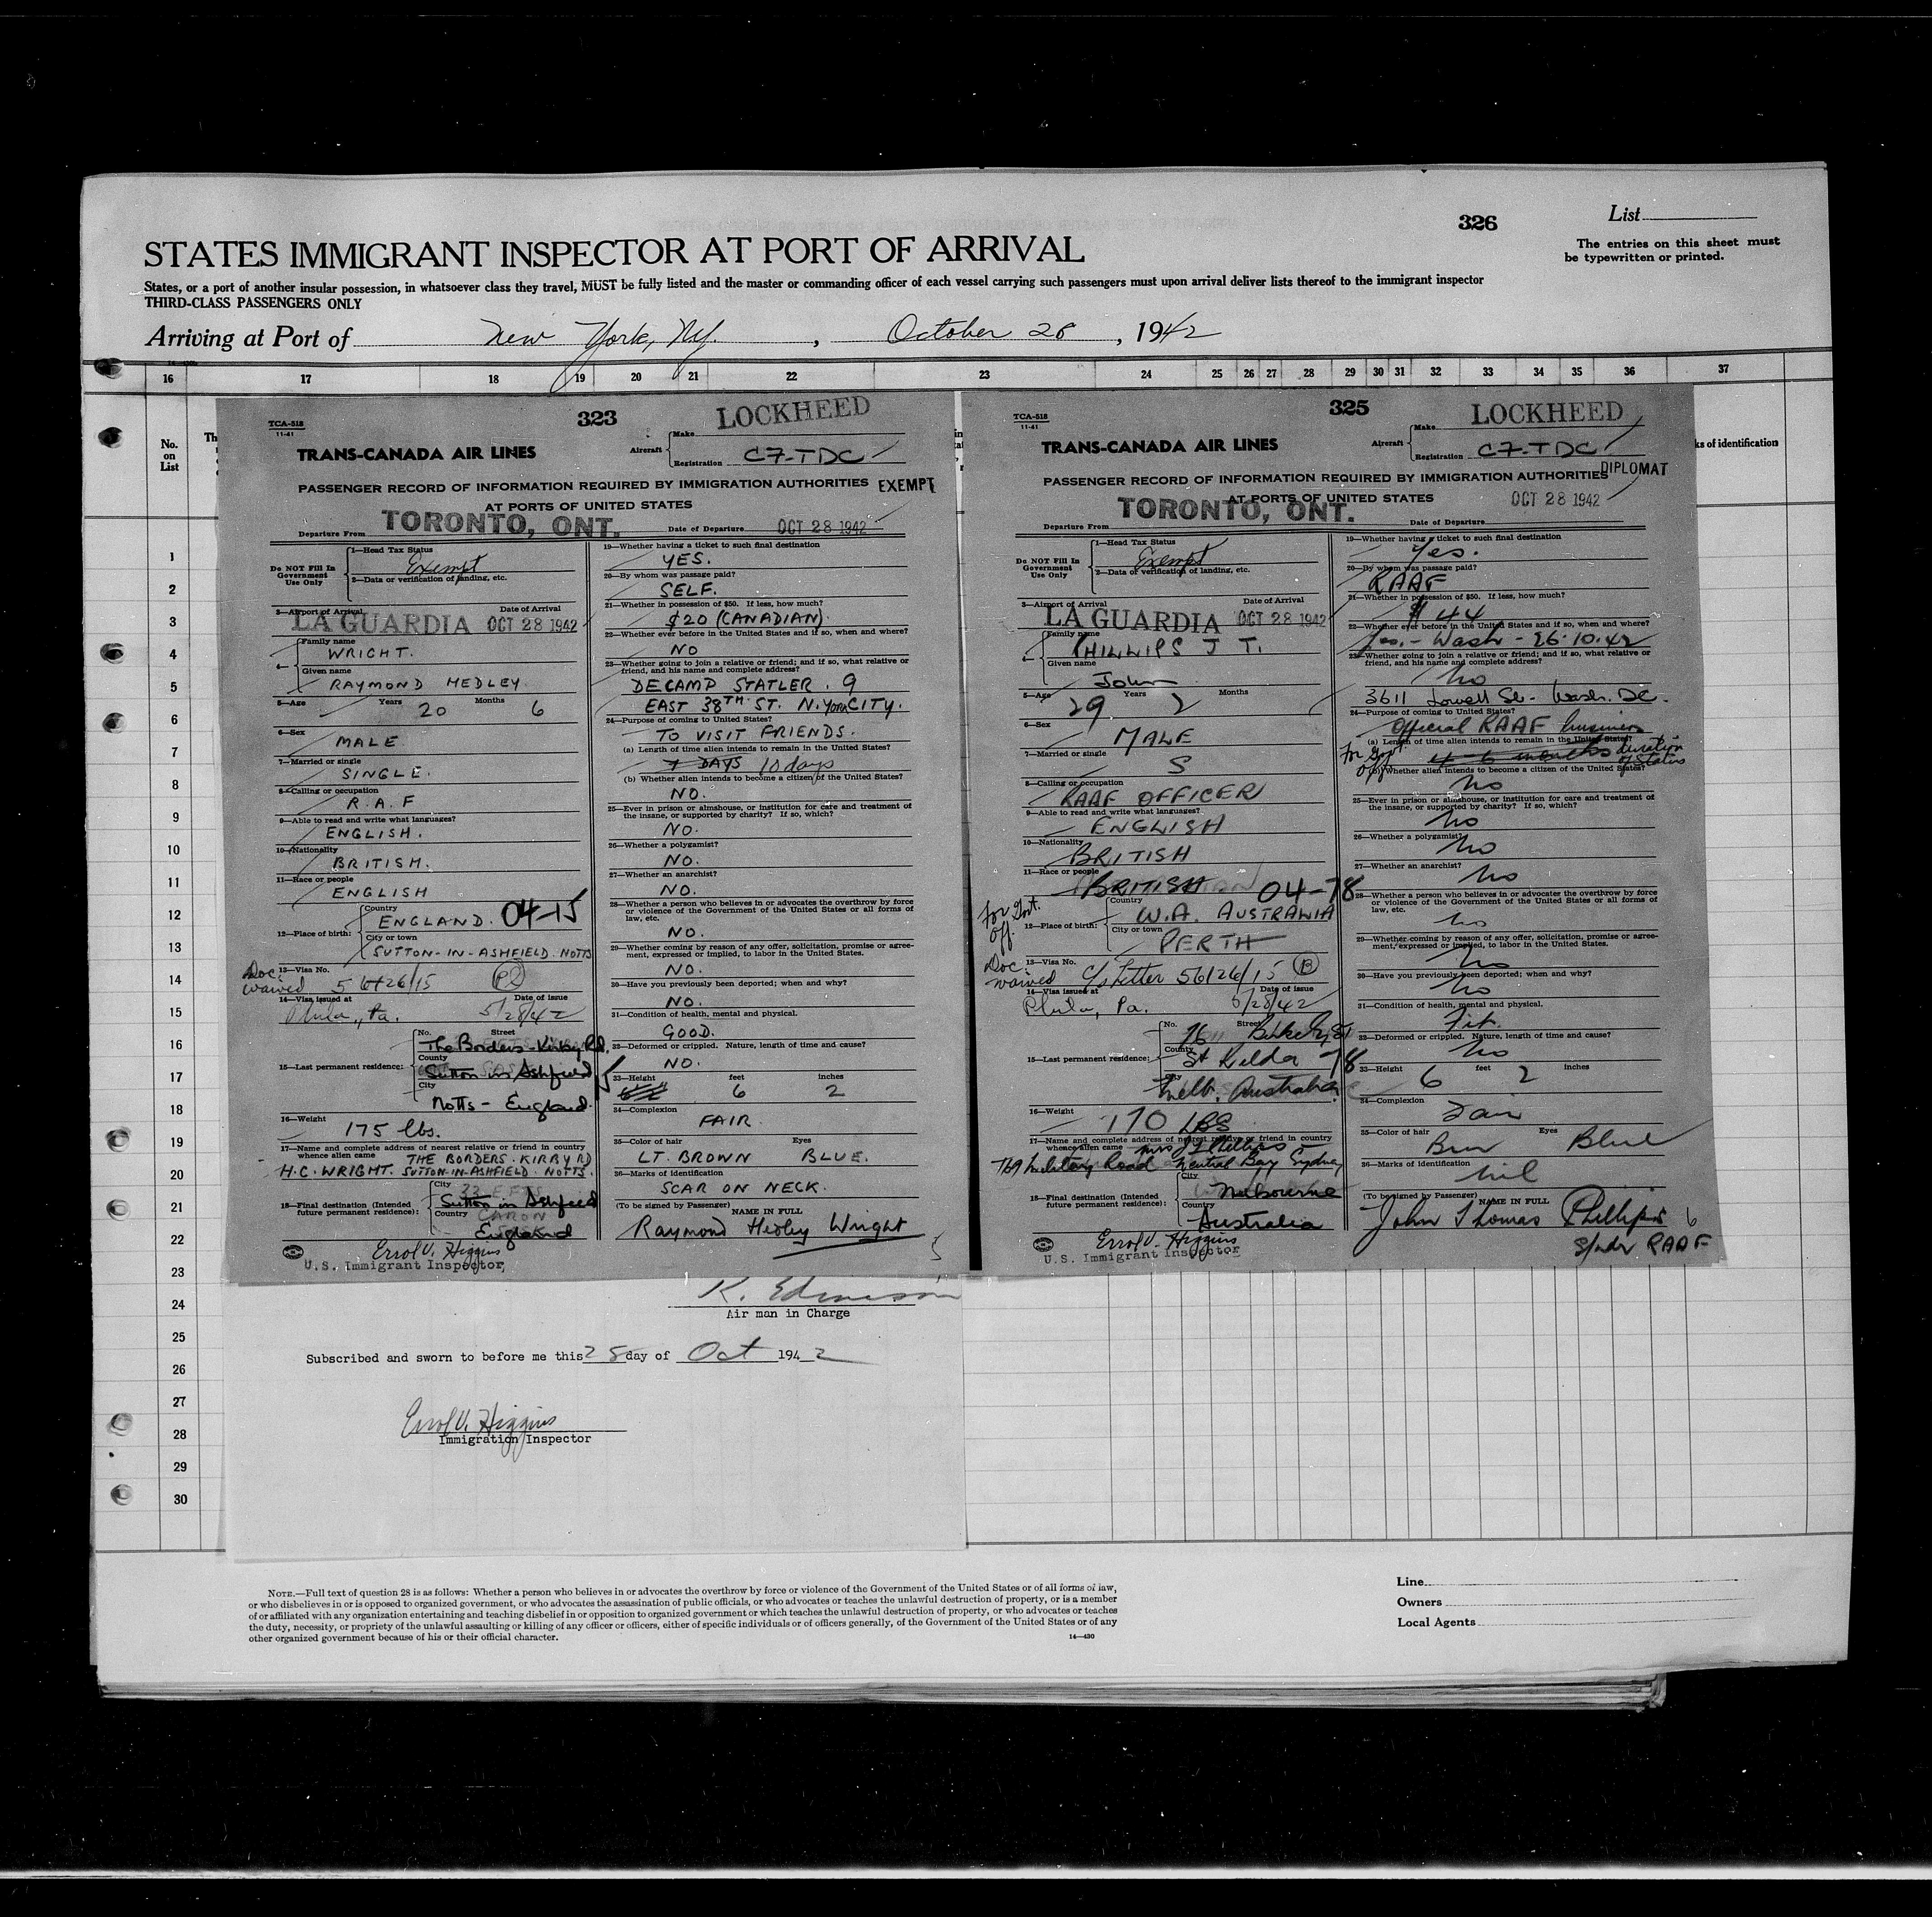 326
List
The entries on this sheet must
be typewritten or printed.
STATES IMMIGRANT INSPECTOR AT PORT OF ARRIVAL
States, or a port of another insular possession, in whatsoever class they travel, MUST be fully listed and the master or commanding officer of each vessel carrying such passengers must upon arrival deliver lists thereof to the immigrant inspector
THIRD-CLASS PASSENGERS ONLY
Arriving at Port of New York, NY. , October 28, 1942
16 17 18 19 20 21 22 23 24 25 26 27 28 29 30 31 32 33 34 35 36 37
No.
on
List
Th
ks of identification
1
2
3
4
5
6
7
8
9
10
11
12
13
14
15
16
17
18
19
20
21
22
23
24
25
26
27
28
29
30
TCA-518
11-41
323
LOCKHEED
TRANS-CANADA AIR LINES
Aircraft
Make
Registration CF-TDC
PASSENGER RECORD OF INFORMATION REQUIRED BY IMMIGRATION AUTHORITIES EXEMPT
AT PORTS OF UNITED STATES
Departure From TORONTO, ONT. Date of Departure OCT 28 1942
Do NOT Fill In
Government
Use Only
1—Head Tax Status
Exempt
2—Data or verification of landing, etc.
3—Airport of Arrival Date of Arrival
LA GUARDIA OCT 28 1942
4—
Family name
WRIGHT.
Given name
RAYMOND HEDLEY.
5—Age Years Months
20 6
6—Sex
MALE
7—Married or single
SINGLE.
8—Calling or occupation
R.A.F
9—Able to read and write what languages?
ENGLISH.
10—Nationality
BRITISH.
11—Race or people
ENGLISH
12—Place of birth:
Country
ENGLAND. 04-15
City or town
SUTTON-IN-ASHFIELD. NOTTS
Doc.
waived
13—Visa No.
56126/15
14—Visa issued at Date of issue
Phila., Pa. 5/28/42
15—Last permanent residence:
No. Street
The Borders - Kirby Rd.
County
Sutton in Ashfield
City
Notts - England.
16—Weight
175 lbs.
17—Name and complete address of nearest relative or friend in country
whence alien came THE BORDERS. KIRBY RD
H.C. WRIGHT. SUTTON-IN-ASHFIELD. NOTTS.
18—Final destination (Intended
future permanent residence):
City
Sutton in Ashfield
Country
England
Errol V. Higgins
U.S. Immigrant Inspector
19—Whether having a ticket to such final destination
YES.
20—By whom was passage paid?
SELF.
21—Whether in possession of $50. If less, how much?
$20 (CANADIAN).
22—Whether ever before in the United States and if so, when and where?
NO
23—Whether going to join a relative or friend; and if so, what relative or
friend, and his name and complete address?
DECAMP STATLER. 9
EAST 38TH ST. N. YORK CITY.
24—Purpose of coming to United States?
TO VISIT FRIENDS.
(a) Length of time alien intends to remain in the United States?
7 DAYS 10 days
(b) Whether alien intends to become a citizen of the United States?
NO.
25—Ever in prison or almshouse, or institution for care and treatment of
the insane, or supported by charity? If so, which?
NO.
26—Whether a polygamist?
NO.
27—Whether an anarchist?
NO.
28—Whether a person who believes in or advocates the overthrow by force
or violence of the Government of the United States or all forms of
law, etc.
NO.
29—Whether coming by reason of any offer, solicitation, promise or agree-
ment, expressed or implied, to labor in the United States.
NO.
30—Have you previously been deported; when and why?
NO.
31—Condition of health, mental and physical.
GOOD.
32—Deformed or crippled. Nature, length of time and cause?
NO.
33—Height feet inches
6 2
34—Complexion
FAIR
35—Color of hair Eyes
LT. BROWN BLUE.
36—Marks of identification
SCAR ON NECK.
(To be signed by Passenger) NAME IN FULL
Raymond Hedley Wright
5
TCA-518
11-41
325
LOCKHEED
TRANS-CANADA AIR LINES
Aircraft
Make
Registration CF-TDC
PASSENGER RECORD OF INFORMATION REQUIRED BY IMMIGRATION AUTHORITIES DIPLOMAT
AT PORTS OF UNITED STATES OCT 28 1942
Departure From TORONTO, ONT. Date of Departure
Do NOT Fill In
Government
Use Only
1—Head Tax Status
Exempt
2—Data or verification of landing, etc.
3—Airport of Arrival Date of Arrival
LA GUARDIA OCT 28 1942
4—
Family name
PHILLIPS J T.
Given name
John
5—Age Years Months
29 2
6—Sex
MALE
7—Married or single
S
8—Calling or occupation
RAAF OFFICER
9—Able to read and write what languages?
ENGLISH
10—Nationality
BRITISH
11—Race or people
BRITISH 04-78
For Govt.
Off.
12—Place of birth:
Country
W.A. AUSTRALIA
City or town
PERTH
Doc.
waived
13—Visa No.
C/s Letter 56126/15
14—Visa issued at Date of issue
Phila, Pa. 5/28/42
15—Last permanent residence:
No. Street
76
County
St Kilda 78
City
Melb. Australia
16—Weight
170 LBS
17—Name and complete address of nearest relative or friend in country
whence alien came Mrs J T Phillips
769 Military Road Neutral Bay Sydney
18—Final destination (Intended
future permanent residence):
City
Melbourne
Country
Australia
Errol V. Higgins
U.S. Immigrant Inspector
19—Whether having a ticket to such final destination
Yes.
20—By whom was passage paid?
RAAF
21—Whether in possession of $50. If less, how much?
$44
22—Whether ever before in the United States and if so, when and where?
Yes. - Wash - 26.10.42
23—Whether going to join a relative or friend; and if so, what relative or
friend, and his name and complete address?
No
3611 Lowell St - Wash. DC.
24—Purpose of coming to United States?
Official RAAF business
(a) Length of time alien intends to remain in the United States?
For Gov't
Off
4-6 months duration
of status
(b) Whether alien intends to become a citizen of the United States?
No
25—Ever in prison or almshouse, or institution for care and treatment of
the insane, or supported by charity? If so, which?
No
26—Whether a polygamist?
No
27—Whether an anarchist?
No
28—Whether a person who believes in or advocates the overthrow by force
or violence of the Government of the United States or all forms of
law, etc.
No
29—Whether coming by reason of any offer, solicitation, promise or agree-
ment, expressed or implied, to labor in the United States.
No
30—Have you previously been deported; when and why?
No
31—Condition of health, mental and physical.
Fit.
32—Deformed or crippled. Nature, length of time and cause?
No
33—Height feet inches
6 2
34—Complexion
Fair
35—Color of hair Eyes
Brn Blue
36—Marks of identification
Nil
(To be signed by Passenger) NAME IN FULL
John Thomas Phillips 6
S/Ldr RAAF
K. Edmison
Air man in Charge
Subscribed and sworn to before me this 28 day of Oct 1942
Errol V. Higgins
Immigration Inspector
NOTE.—Full text of question 28 is as follows: Whether a person who believes in or advocates the overthrow by force or violence of the Government of the United States or of all forms of law,
or who disbelieves in or is opposed to organized government, or who advocates the assassination of public officials, or who advocates or teaches the unlawful destruction of property, or is a member
of or affiliated with any organization entertaining and teaching disbelief in or opposition to organized government or which teaches the unlawful destruction of property, or who advocates or teaches
the duty, necessity, or propriety of the unlawful assaulting or killing of any officer or officers, either of specific individuals or of officers generally, of the Government of the United States or of any
other organized government because of his or their official character.
14—430
Line
Owners
Local Agents